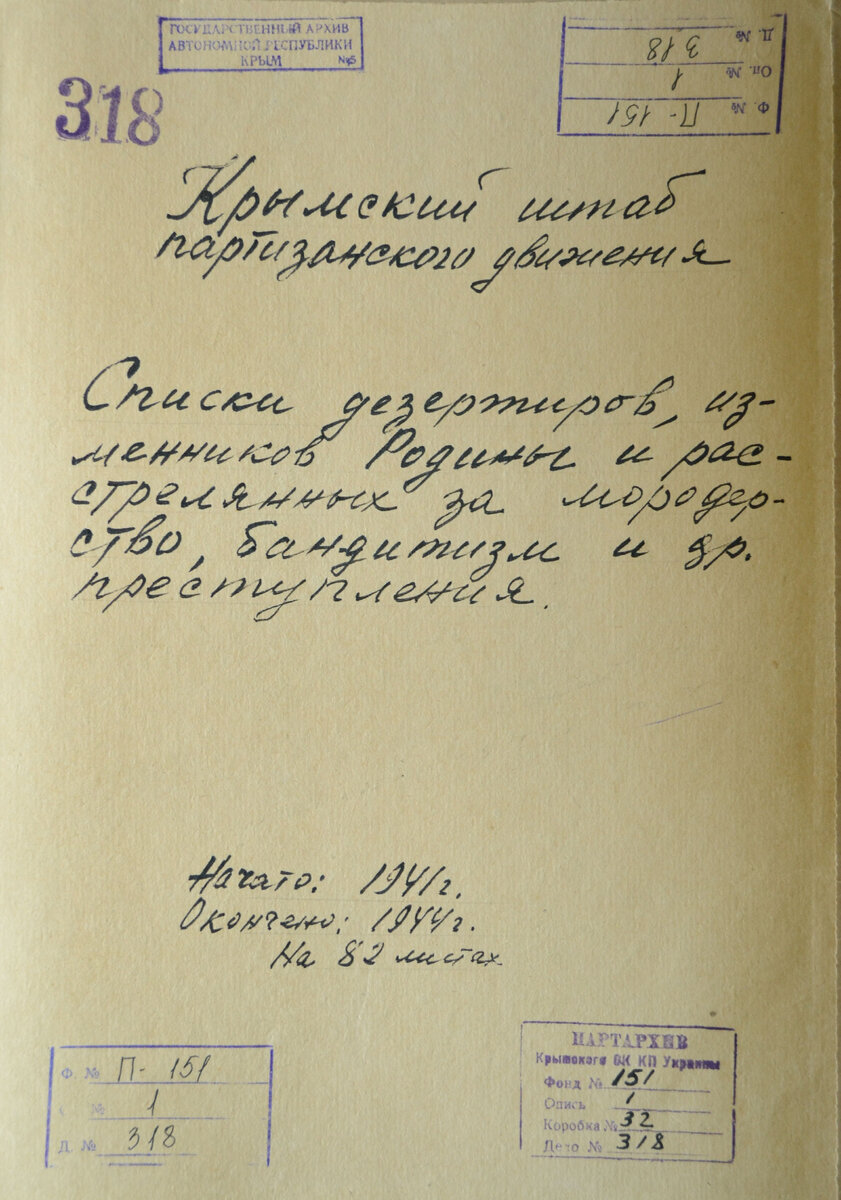 ГОСУДАРСТВЕННЫЙ АРХИВ
АВТОНОМНОЙ РЕСПУБЛИКИ
КРЫМ №5
Ф. № П-151
Оп. № 1
Д. № 318
318
Крымский штаб
партизанского движения
Списки дезертиров, из-
менников Родины и рас-
стрелянных за мородер-
ство, бандитизм и др.
преступления.
Начато: 1941г.
Окончено: 1944г.
На 82 листах
Ф. № П- 151
№ 1
Д. № 318
ПАРТАРХИВ
Крымского ОК КП Украины
Фонд № 151
Опись 1
Коробка № 32
Дело № 318